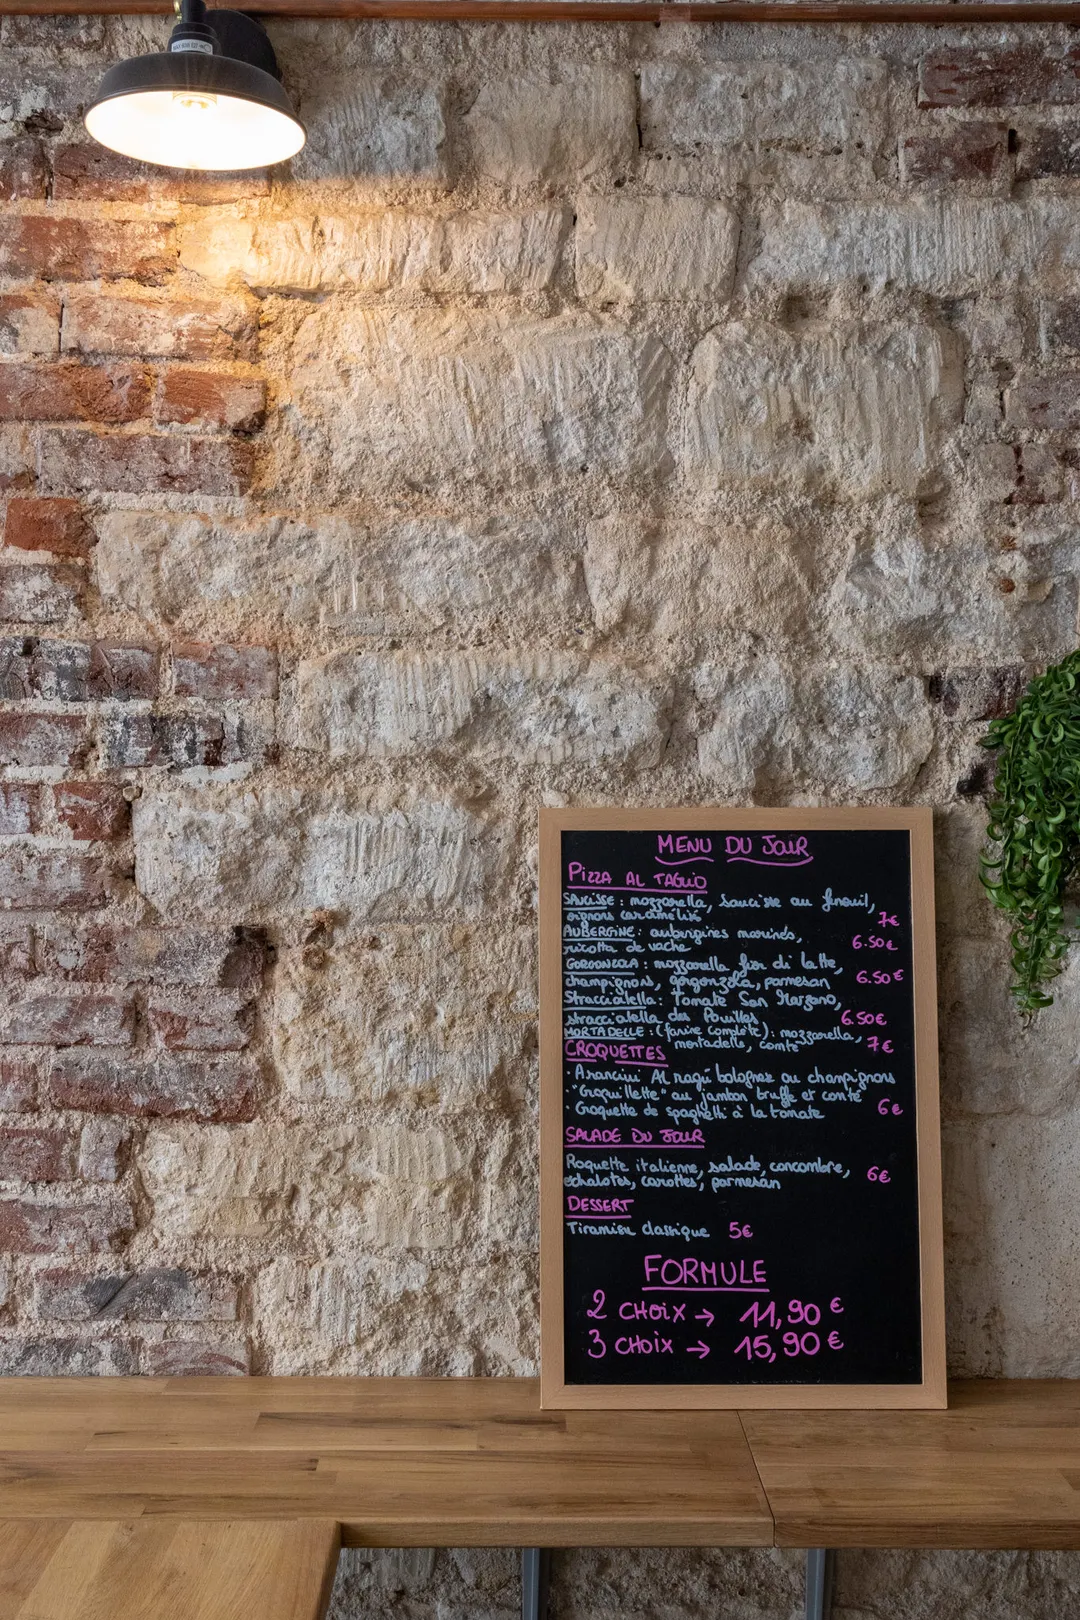 MENU DU JOUR
PIZZA AL TAGLIO
SAUCISSE : mozzarella, saucisse au fenouil,
oignons caramélisé 7€
AUBERGINE : aubergines marinés,
ricotta de vache 6.50€
GORGONZOLA : mozzarella fior di latte,
champignons, gorgonzola, parmesan 6.50€
Stracciatella : Tomate San Marzano,
stracciatella des Pouilles 6.50€
MORTADELLE : (farine complète) : mozzarella,
mortadelle, comté 7€
CROQUETTES
· Arancini Al ragú bolognes ou champignons
· "Croquillette" au jambon truffe et comté
· Croquette de spaghetti à la tomate 6€
SALADE DU JOUR
Roquette italienne, salade, concombre,
échalotes, carottes, parmesan 6€
DESSERT
Tiramisu classique 5€
FORMULE
2 CHOIX → 11,90 €
3 CHOIX → 15,90 €